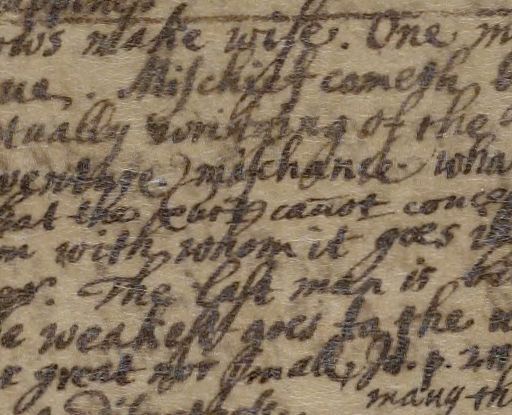 ows make wise. One m
ue. Mischief cometh b
tually writhing of the
venture) mischance. wha
hat the court cañot conce
m with whom it goes il
er. The last man is be
e weakest goes to the w
e great nor small, Id. p. 2
many th